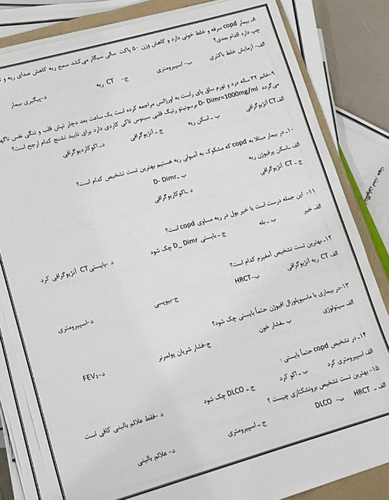 ۸ـ بیمار copd سرفه و خلط خونی دارد و کاهش وزن ۵۰ پاکت سالی سیگار می‌کشد سمع ریه کاهش صدای ریه و
چپ دارد اقدام بعدی؟
الف- آزمایش خلط باکتری ب- اسپیرومتری ج- CT ریه د-پیگیری بیمار
۹-خانم ۲۲ ساله درد و تورم ساق پای راست به اورژانس مراجعه کرده است یک ساعت بعد دچار تپش قلب و تنگی نفس
می‌گردد. D-Dimr=1000mg/ml درسونیتو رنگ قلبی سینوس تاکی کاردی دارد برای تایید تشنج کدام ارجح است؟
الف CT آنژیوگرافی ب - اسکن ریه ج - آنژیوگرافی د-اکوکاردیوگرافی
۱۰- در بیمار مبتلا به copd که مشکوک به آمبولی ریه هستیم بهترین تست تشخیص کدام است؟
الف -اسکن پرفیوژن ریه ب - D-Dimr
ج - CT آنژیوگرافی د -اکوکاردیوگرافی
۱۱- این جمله درست است یا خیر بول در ریه مساوی copd است؟
الف خیر ب - بله ج - بایستی D_Dimr چک شود د -بایستی CT آنژیوگرافی کرد
۱۲- بهترین تست تشخیص آمفیزم کدام است؟
الف CT ریه آنژیوگرافی ب-HRCT ج-بیوپسی د-اسپیرومتری
۱۳-در بیماری با ماسیوپلورال افیوژن حتماً بایستی چک شود؟
الف سیتولوژی ب -فشار خون ج-فشار شریان پولمرنر د-FEV1
۱۴- در تشخیص copd حتماً بایستی :
الف اسپیرومتری کرد ب - اکو کرد ج - DLCO چک شود د -فقط علائم بالینی کافی است
۱۵- بهترین تست تشخیص برونشکتازی چیست ؟
الف - HRCT ب- DLCO ج - اسپیرومتری د- علائم بالینی